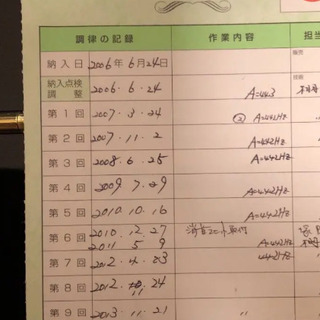 調律の記録 作業内容 担当
納入日 2006年6月24日
納入点検調整 2006.6.24 A=443
第1回 2007.3.24 A=442Hz
第2回 2007.11.2 A=442Hz
第3回 2008.6.25 A=442Hz
第4回 2009.7.29 A=442Hz
第5回 2010.10.16 A=442Hz
第6回 2010.12.27 消音ユニット取付
2011 5 9 A=442Hz
第7回 2012.4.23 442Hz
第8回 2012.11.24 〃
第9回 2013.11.21 〃